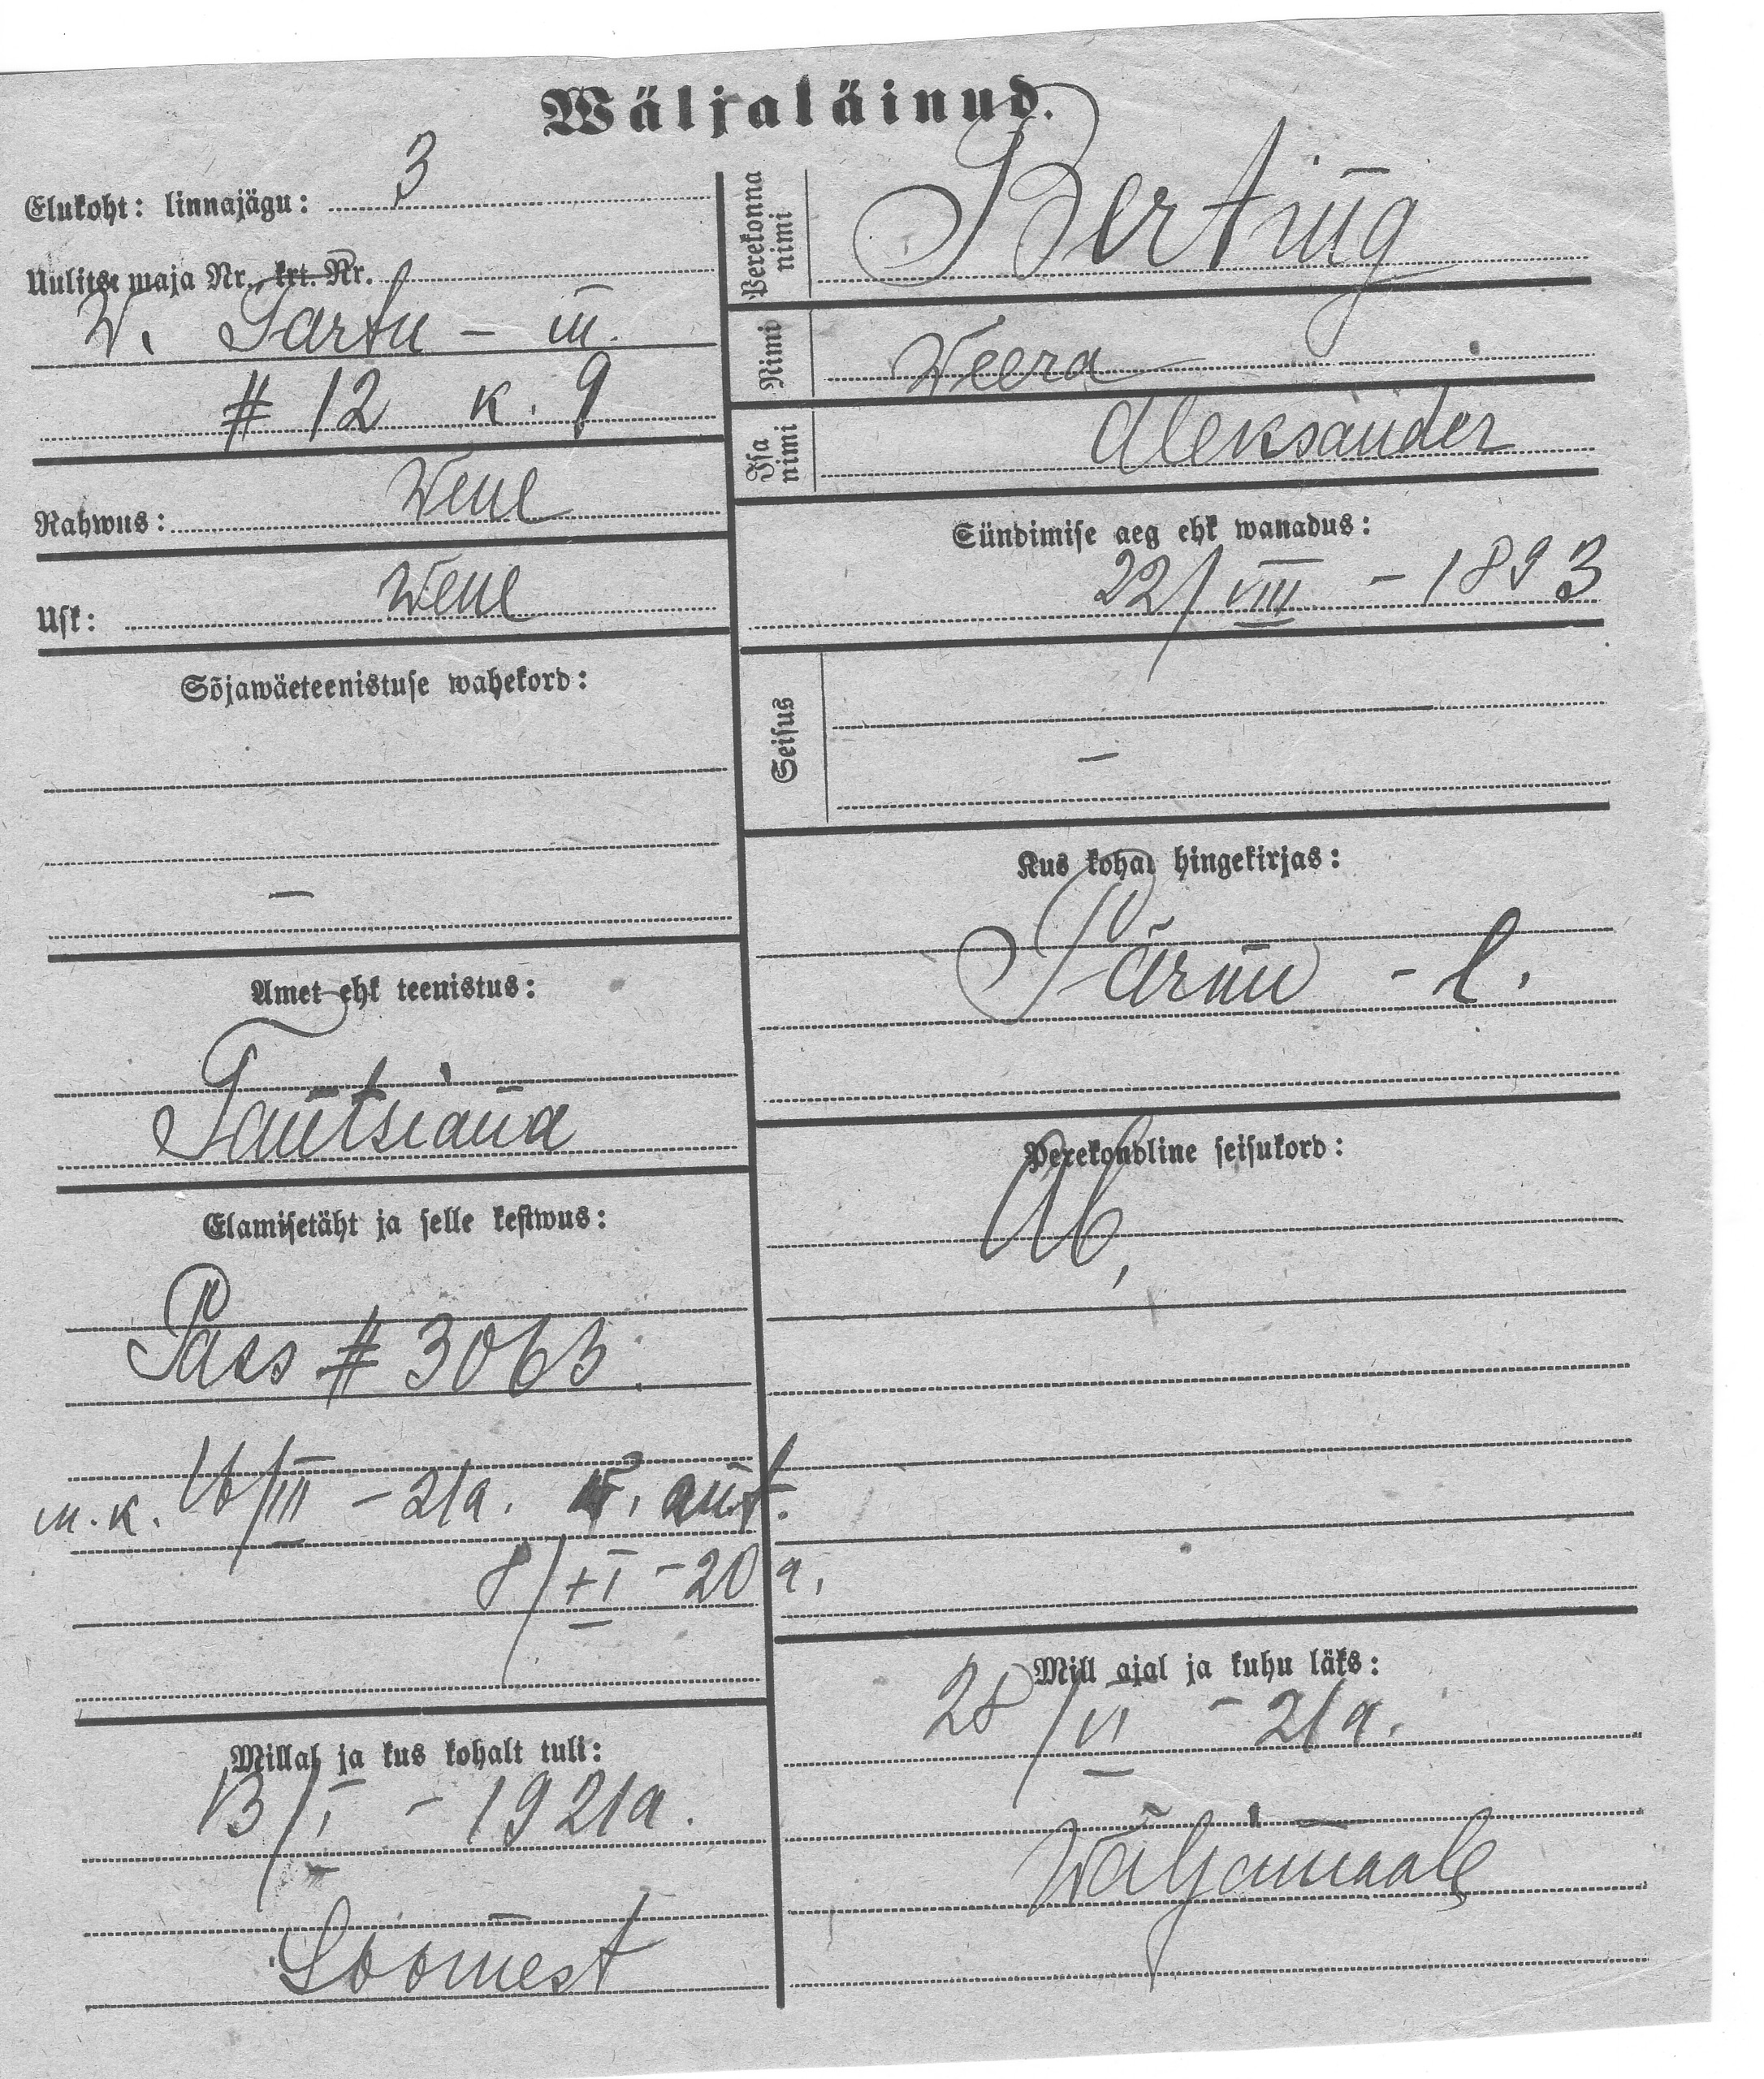 Wäljaläinud.
Elukoht: linnajägu: 3
Uulits: maja Nr. krt. Nr.
W. Tartu - m.
# 12 k. 9
Rahwus: Wene
Usk: Wene
Sõjawäeteenistuse wahekord:
—
Amet ehk teenistus:
Tantsiana
Elamisetäht ja selle kestwus:
Pass # 3063.
m. k. 16/III - 21 a.
8/XI - 20 a.
Millal ja kus kohalt tuli:
13/I - 1921 a.
Soomest
Perekonna nimi Berting
Nimi Weera
Isa nimi Aleksander
Sündimise aeg ehk wanadus:
22/VIII - 1893
Seisus
—
Kus kohal hingekirjas:
Pärnu - l.
Perekondline seisukord:
Ab,
Mill ajal ja kuhu läks:
28/VI - 21 a.
Wäljamaale